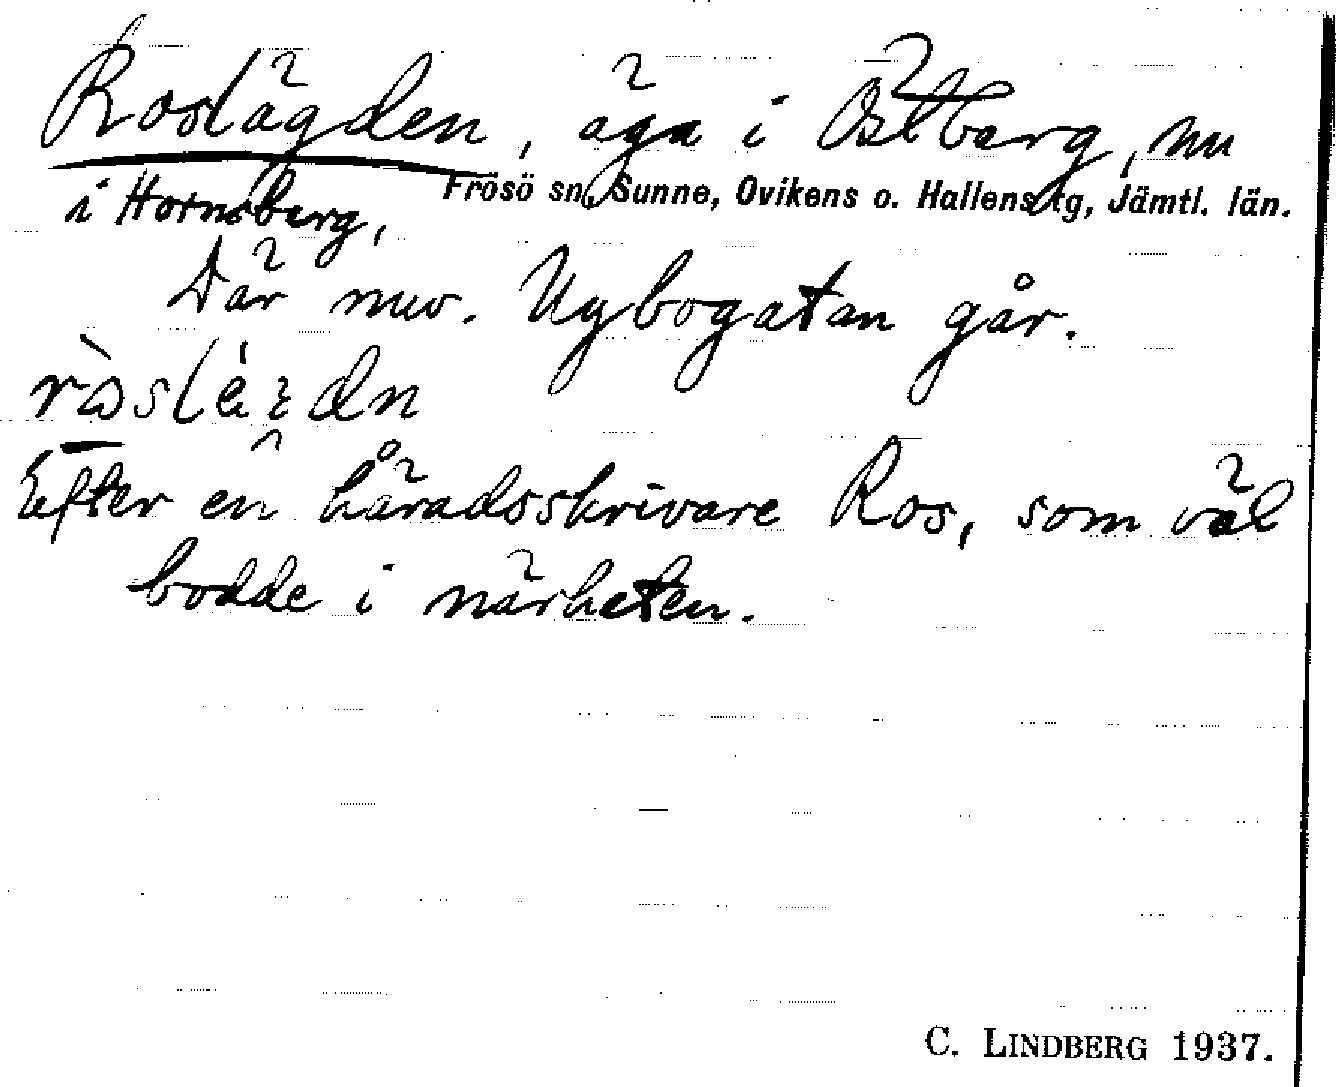 Roslägden, äga i Östberg, nu
Frösö sn, Sunne, Ovikens o. Hallens tg, Jämtl. län.
i Hornsberg,
Där nuv. Nybogatan går.
Efter en häradsskrivare Ros, som väl
bodde i närheten.
C. LINDBERG 1937.